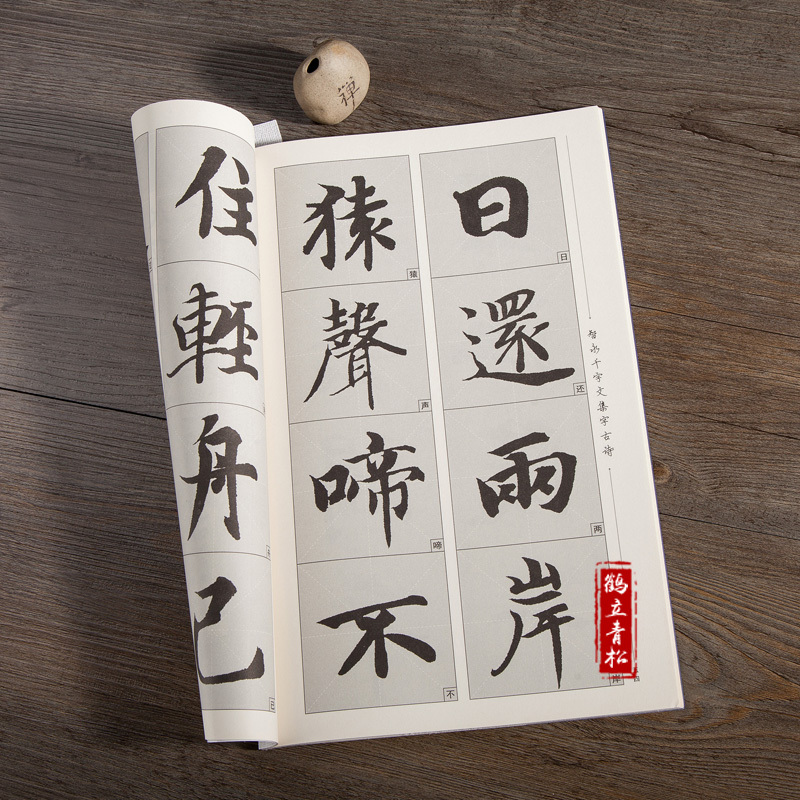 禅
日還兩岸
日
还
两
岸
猿聲啼不
猿
声
啼
不
住輕舟已
已
智永千字文集字古诗
鹤立青松